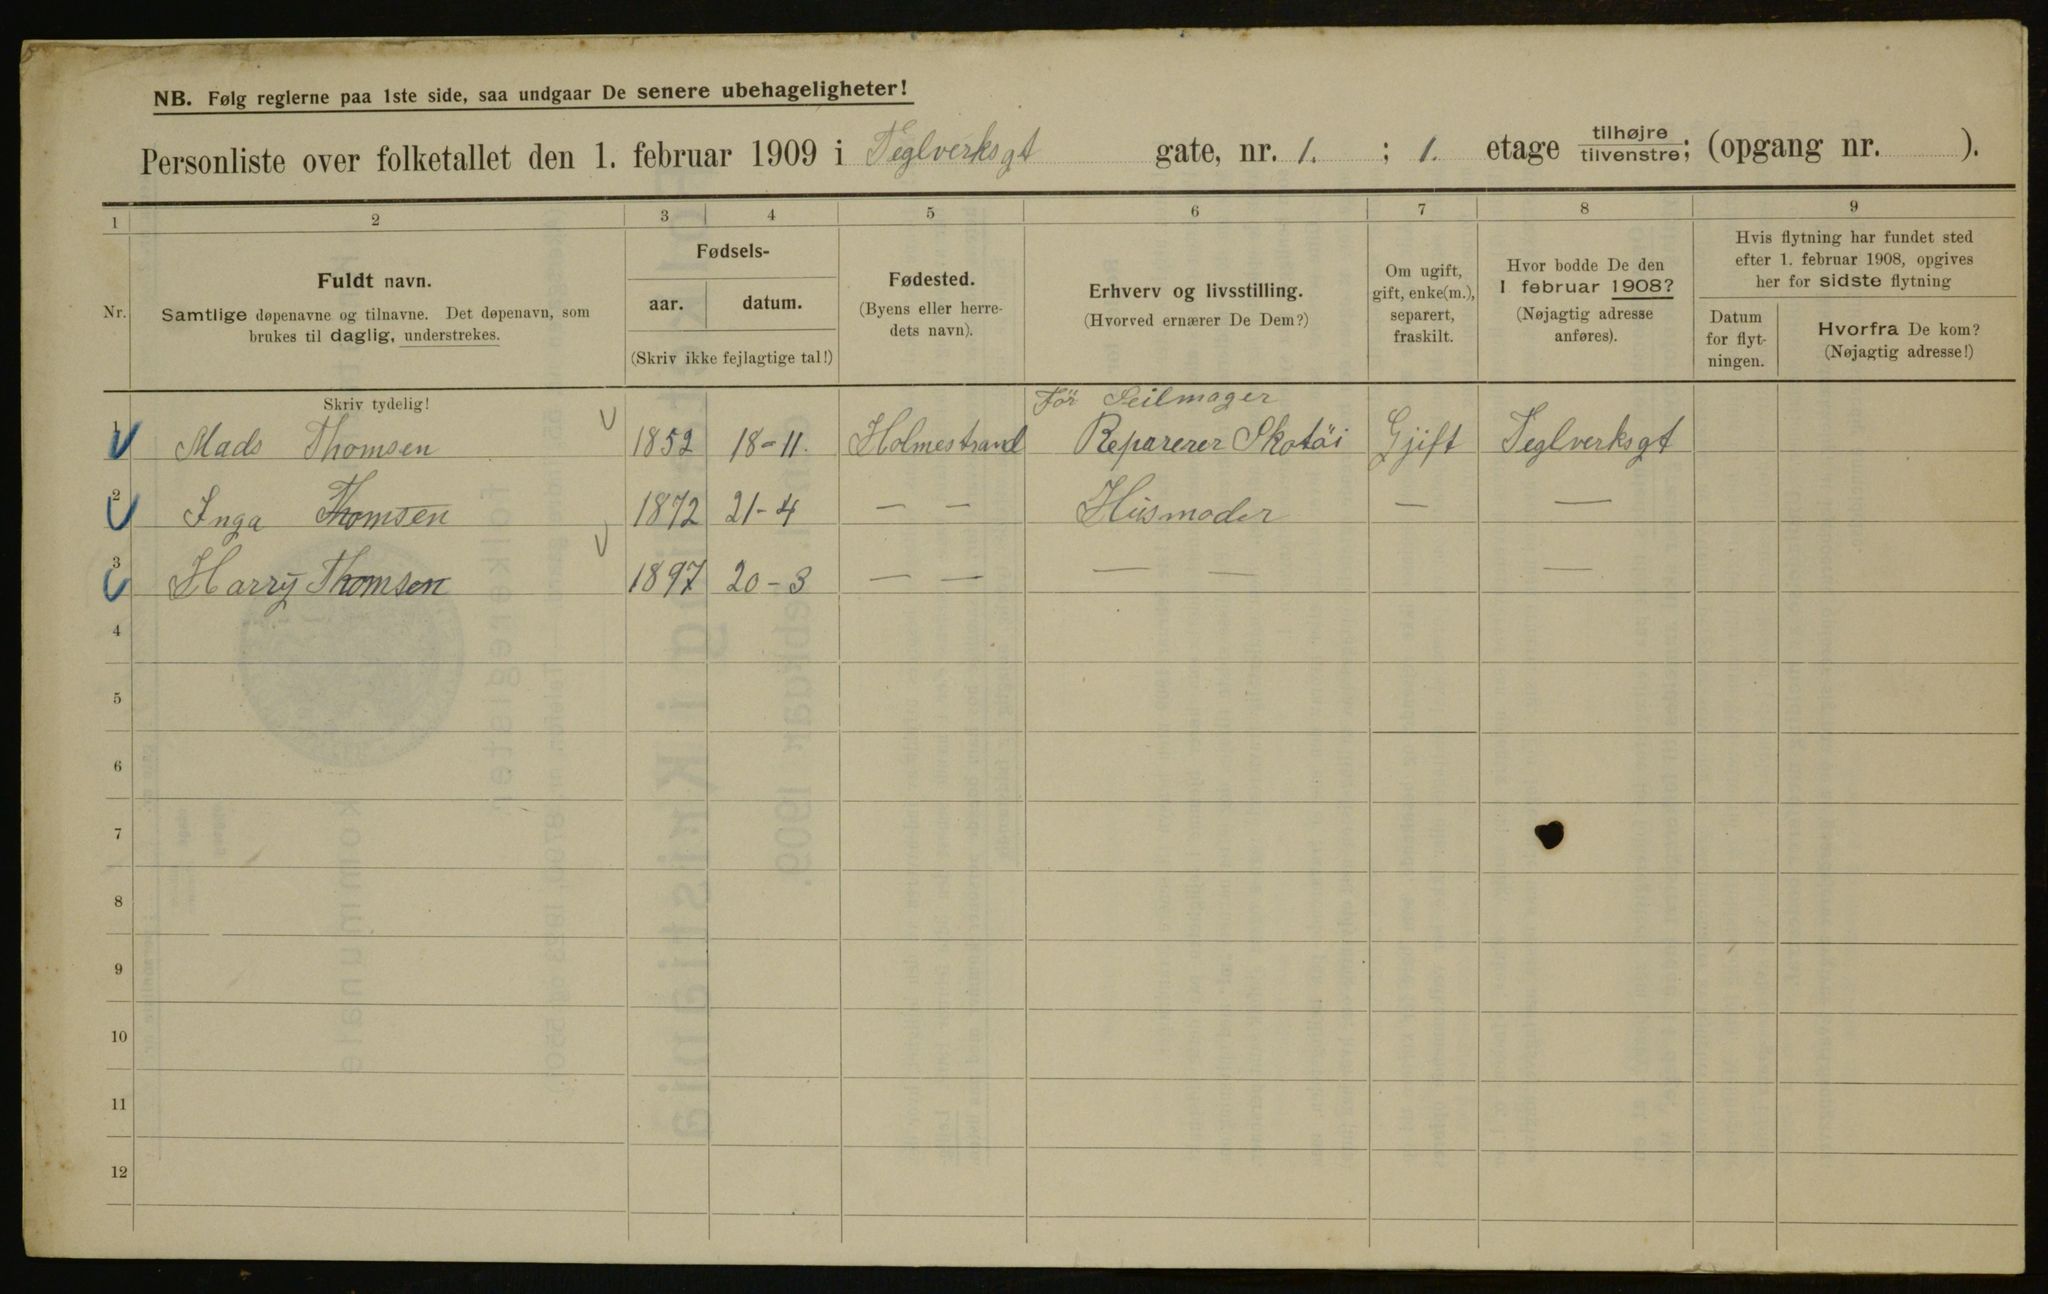 NB. Følg reglerne paa 1ste side, saa undgaar De senere ubehageligheter!
Personliste over folketallet den 1. februar 1909 i Teglverksgt gate, nr. 1. ; 1. etage tilhøjre/tilvenstre; (opgang nr. ).
1 2 3 4 5 6 7 8 9
Nr.
Fuldt navn.
Samtlige døpenavne og tilnavne. Det døpenavn, som
brukes til daglig, understrekes.
Fødsels-
aar. datum.
(Skriv ikke fejlagtige tal!)
Fødested.
(Byens eller herre-
dets navn).
Erhverv og livsstilling.
(Hvorved ernærer De Dem?)
Om ugift,
gift, enke(m.),
separert,
fraskilt.
Hvor bodde De den
1 februar 1908?
(Nøjagtig adresse
anføres).
Hvis flytning har fundet sted
efter 1. februar 1908, opgives
her for sidste flytning
Datum
for flyt-
ningen.
Hvorfra De kom?
(Nøjagtig adresse!)
Skriv tydelig!
Før Seilmager
1 Mads Thomsen 1852 18-11. Holmestrand Reparerer Skotöi Gjift Teglverksgt
2 Inga Thomsen 1872 21-4 — — Husmoder — —
3 Harry Thomsen 1897 20-3 — — — — —
4
5
6
7
8
9
10
11
12